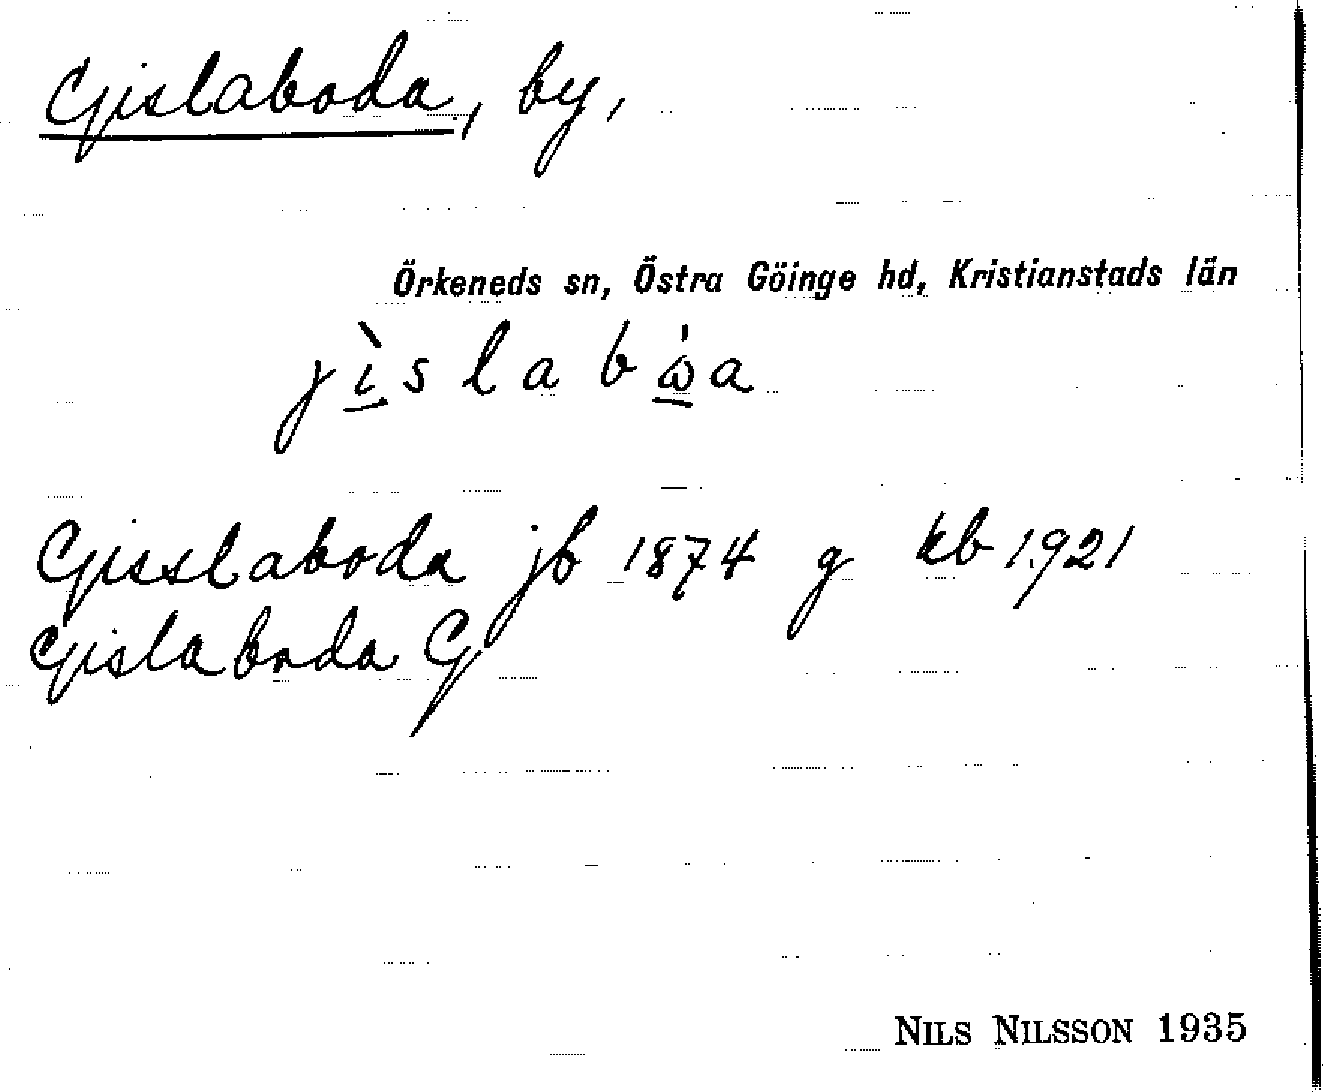 Gislaboda, by,
Örkeneds sn, Östra Göinge hd, Kristianstads län
jìslabω̇a
Gisslaboda jb 1874 g kb 1921
Gislaboda G
NILS NILSSON 1935